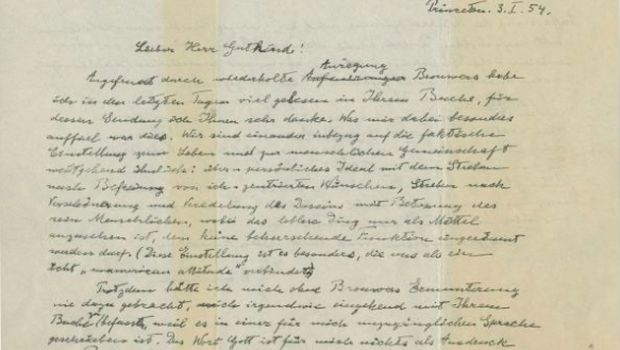 Princeton. 3. I. 54.
Lieber Herr Gutkind!
Angefeuert durch wiederholte Anregung Brouwers habe
ich in den letzten Tagen viel gelesen in Ihrem Buche, für
dessen Sendung ich Ihnen sehr danke. Was mir dabei besonders
auffiel war dies. Wir sind einander inbezug auf die faktische
Einstellung zum Leben und zur menschlichen Gemeinschaft
weitgehend ähnlich: persönliches Ideal mit dem Streben
nach Befreiung von ich-zentrierten Wünschen, Streben nach
Verschönerung und Veredelung des Daseins mit Betonung des
rein Menschlichen, wobei das leblose Ding nur als Mittel
anzusehen ist, dem keine beherrschende Funktion eingeräumt
werden darf. (Diese Einstellung ist es besonders, die uns als ein
echt "unamerican attitude" verbindet)
Trotzdem hätte ich mich ohne Brouwers Ermunterung
nie dazu gebracht, mich irgendwie eingehend mit Ihrem
Buche befasst, weil es in einer für mich unzugänglichen Sprache
geschrieben ist. Das Wort Gott ist für mich nichts als Ausdruck